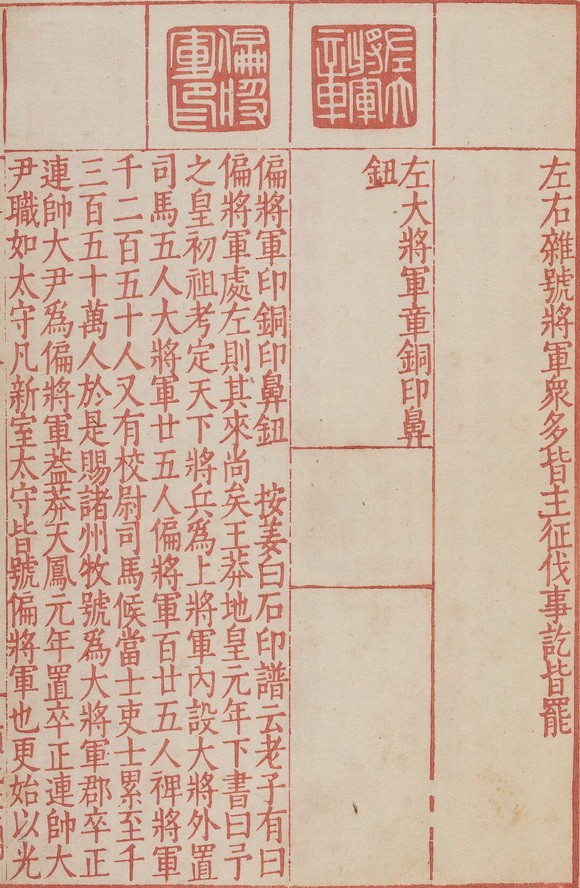 左右雜號將軍衆多皆主征伐事訖皆罷
左大
將軍
章
左大將軍童銅印鼻
鈕
偏將
軍印
偏將軍印銅印鼻鈕　按姜白石印譜云老子有曰
偏將軍處左則其來尚矣王莽地皇元年下書曰予
之皇初祖考定天下將兵爲上將軍內設大將外置
司馬五人大將軍廿五人偏將軍百廿五人裨將軍
千二百五十人又有校尉司馬候當士吏士累至千
三百五十萬人於是賜諸州牧號爲大將軍郡卒正
連帥大尹爲偏將軍葢莽天鳳元年置卒正連帥大
尹職如太守凡新室太守皆號偏將軍也更始以光